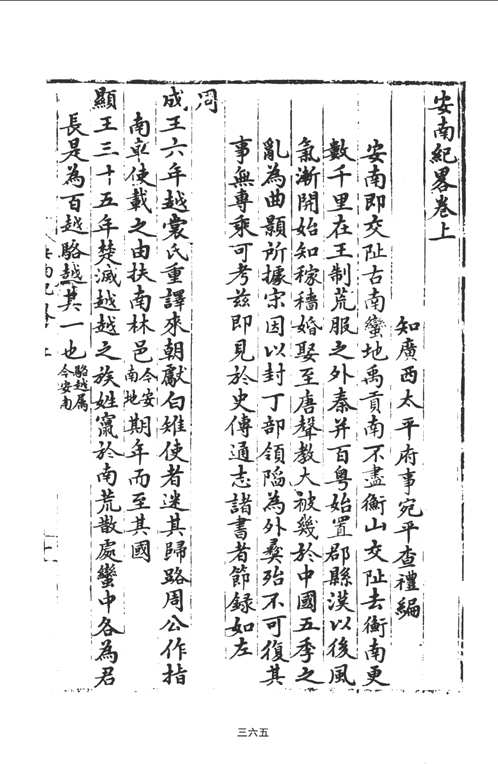 安南紀畧卷上
知廣西太平府事宛平查禮編
安南即交阯古南蠻地禹貢南不盡衡山交阯去衡南更
數千里在王制荒服之外秦并百粤始置郡縣漢以後風
氣漸開始知稼穡婚娶至唐聲教大被幾於中國五季之
亂為曲顥所據宋因以封丁部領陷為外彜殆不可復其
事無專乘可考兹即見於史傳通志諸書者節録如左
周
成王六年越裳氏重譯來朝獻白雉使者迷其歸路周公作指
南車使載之由扶南林邑今安南地期年而至其國
顯王三十五年楚滅越越之族姓竄於南荒散處蠻中各為君
長是為百越駱越其一也駱越属今安南
三六五